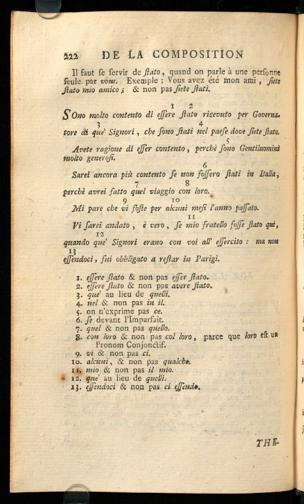 222 DE LA COMPOSITION
Il faut se servir de stato, quand on parle à une personne
seule par vous. Exemple: Vous avez été mon ami, siete
stato mio amico; & non pas siete stati.
1 2
SOno molto contento di essere stato ricevuto per Governa-
3 4
tore di que' Signori, che sono stati nel paese dove siete stato.
5
Avete ragione di esser contento, perchè sono Gentiluomini
molto generosi.
6
Sarei ancora più contento se non fossero stati in Italia,
7 8
perchè avrei fatto quel viaggio con loro.
9 10
Mi pare che vi foste per alcuni mesi l'anno passato.
11
Vi sarei andato, è vero, se mio fratello fosse stato qui,
12
quando que' Signori erano con voi all' esercito: ma non
13
essendoci, fui obbligato a restar in Parigi.
1. essere stato & non pas esser stato.
2. essere stato & non pas avere stato.
3. que' au lieu de quelli.
4. nel & non pas in il.
5. on n'exprime pas ce.
6. se devant l'Imparfait.
7. quel & non pas quello.
8. con loro & non pas col loro, parce que loro est un
Pronom Conjonctif.
9. vi & non pas ci.
10. alcuni, & non pas qualche.
11. mio & non pas il mio.
12. que' au lieu de quelli.
13. essendoci & non pas ci essendo.
THE-